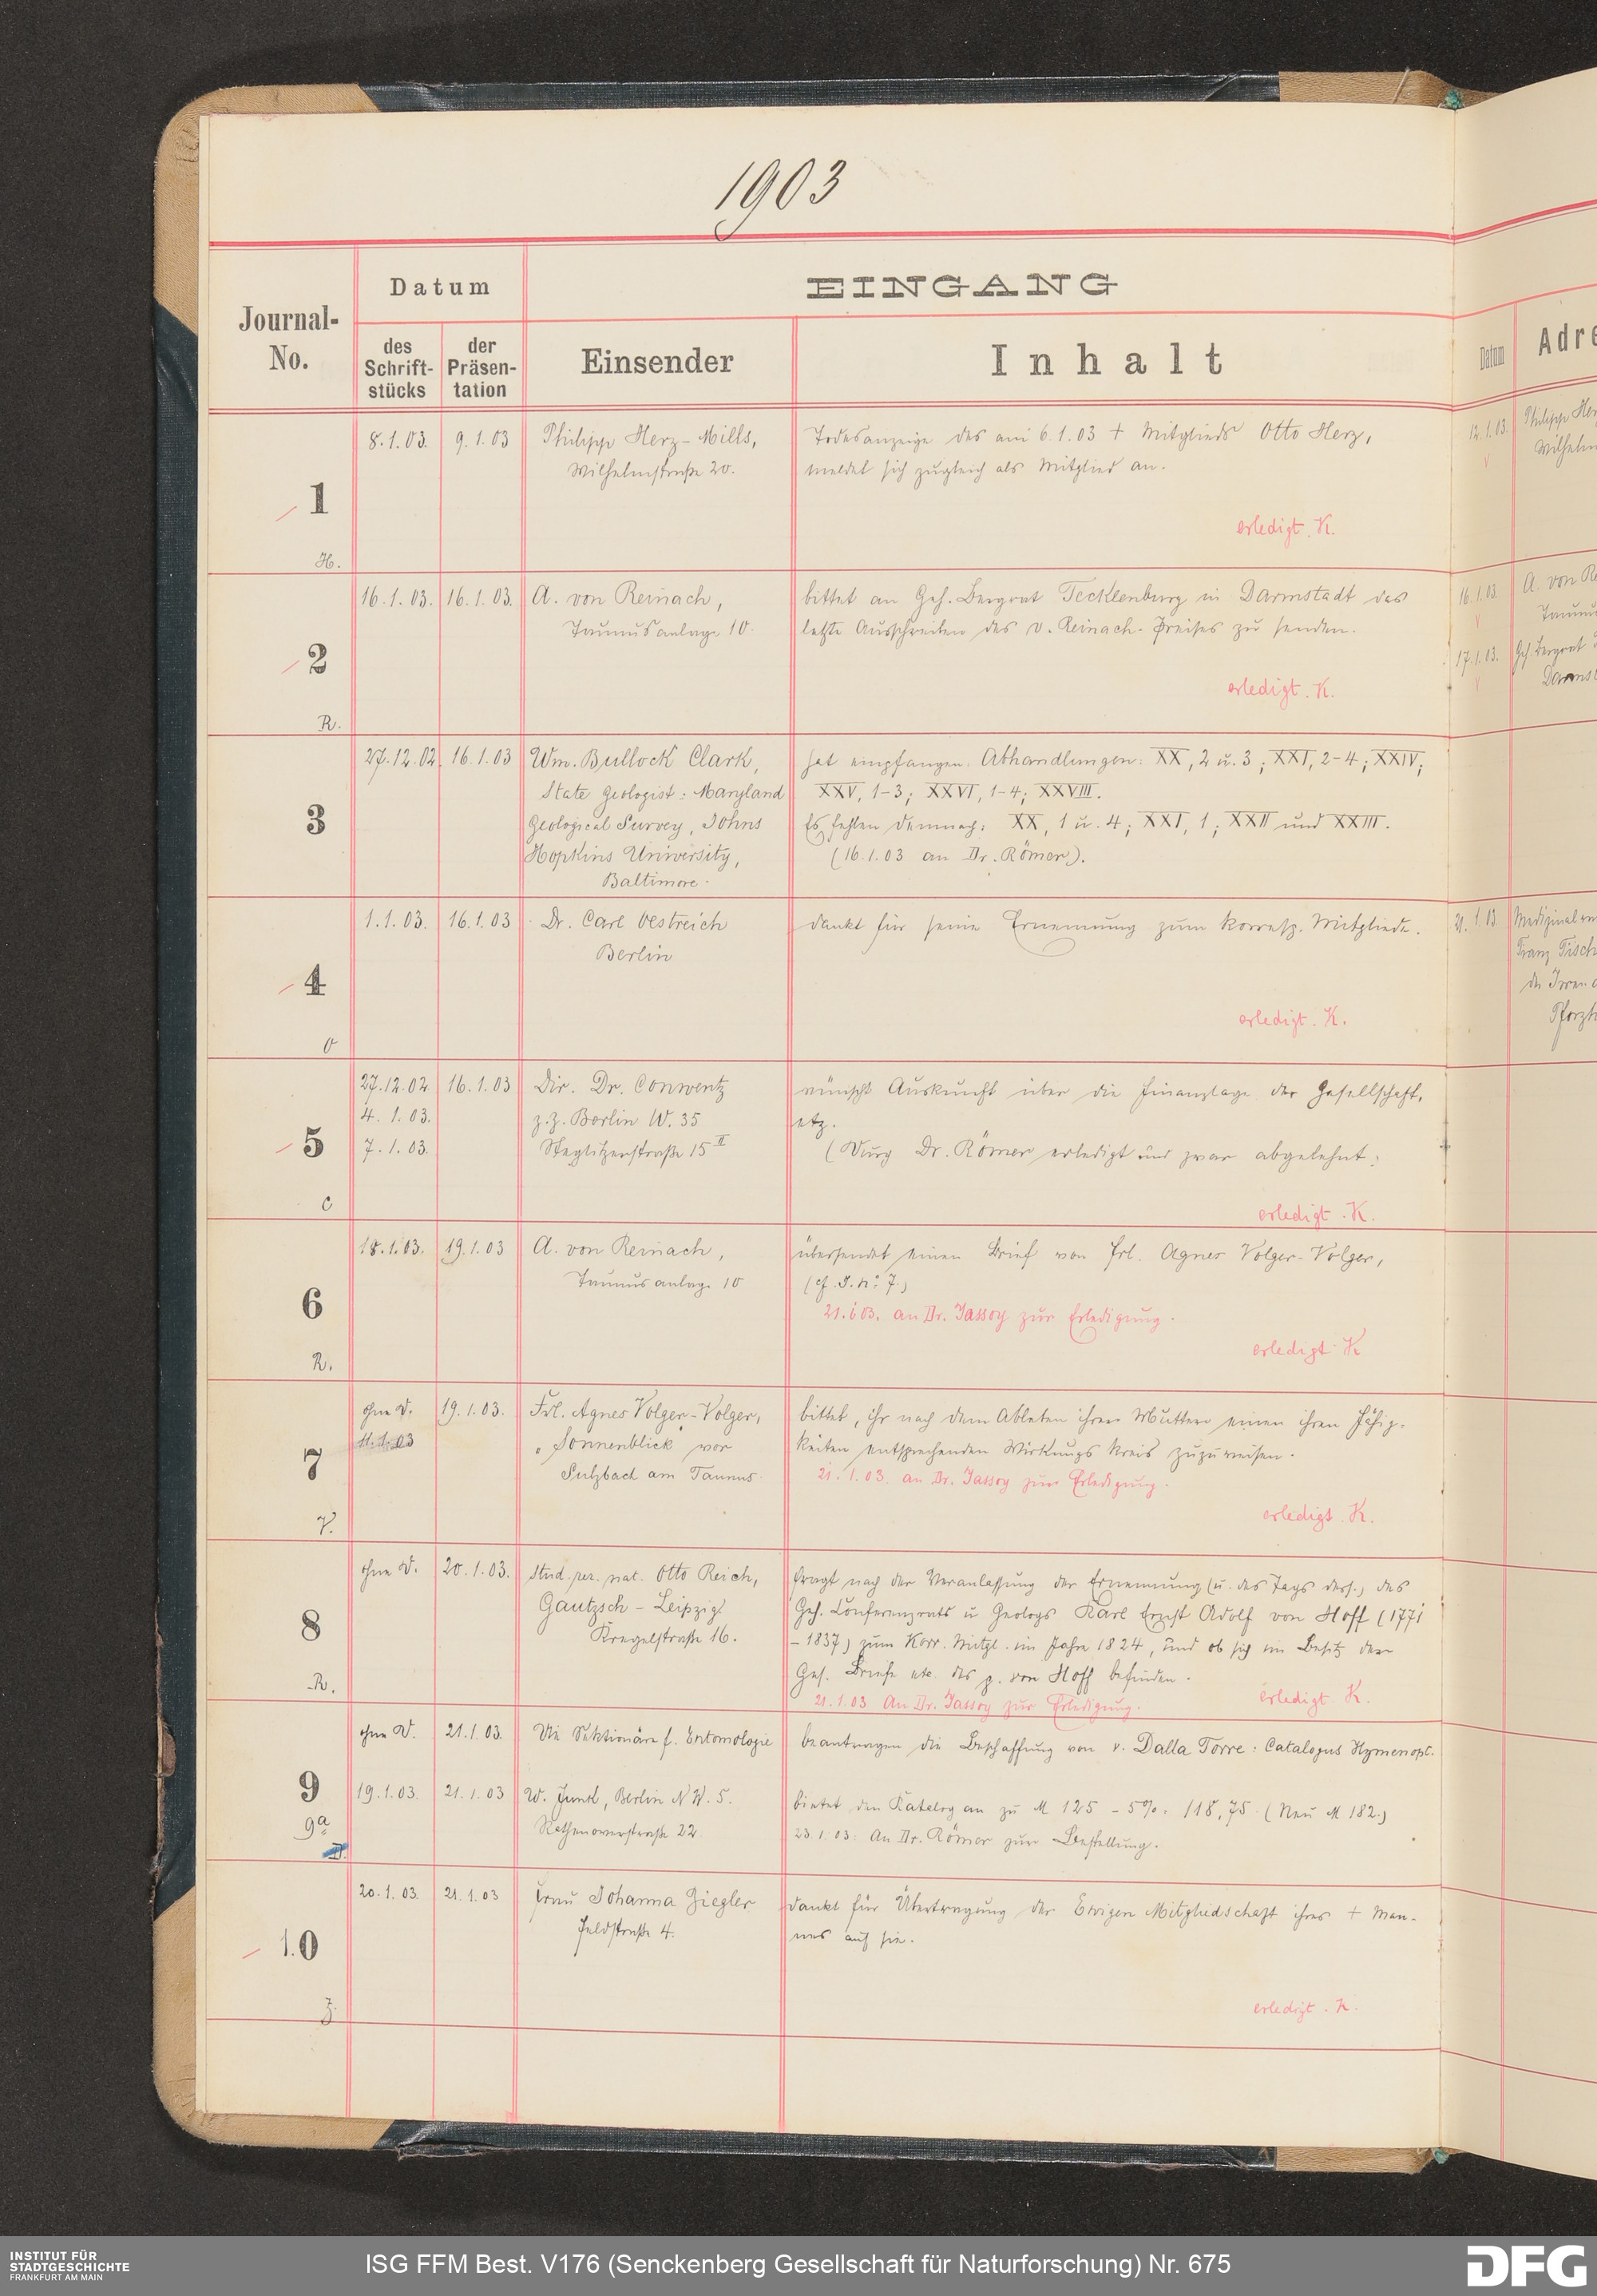 1903
Journal-No.
Datum
EINGANG
des Schrift-stücks
der Präsen-tation
Einsender
Inhalt
Datum
Adre
1
H.
8.1.03.
9.1.03
Philipp Herz-Mills,
Wilhelmstraße 20.
Todesanzeige des am 6.1.03 † Mitglieds Otto Herz,
meldet sich zugleich als Mitglied an.
erledigt. K.
12.1.03.
Philipp Her
Wilhelm
2
R.
16.1.03.
16.1.03.
A. von Reinach,
Taunusanlage 10.
bittet an Geh. Bergrat Tecklenburg in Darmstadt das
letzte Ausschreiben des v. Reinach-Preises zu senden.
erledigt. K.
16.1.03.
A. von Re
Taunu
17.1.03.
Geh. Bergrat
Darmst
3
27.12.02
16.1.03
Wm. Bullock Clark,
State Geologist: Maryland
Geological Survey, Johns
Hopkins University,
Baltimore.
hat empfangen: Abhandlungen: XX, 2 u. 3; XXI, 2-4; XXIV;
XXV, 1-3; XXVI, 1-4; XXVIII.
Es fehlen demnach: XX, 1 u. 4; XXI, 1; XXII und XXIII.
(16.1.03 an Dr. Römer).
4
O
1.1.03.
16.1.03
Dr. Carl Oestreich
Berlin
dankt für seine Ernennung zum korresp. Mitgliede.
erledigt. K.
21.1.03.
Medizinalra
Franz Fisch
der Irren
Pforzh
5
C
27.12.02
4.1.03.
7.1.03.
16.1.03
Dir. Dr. Conwentz
z.Z. Berlin W. 35
Steglitzerstraße 15 II
wünscht Auskunft über die Finanzlage der Gesellschaft,
etz.
(Durch Dr. Römer erledigt und zwar abgelehnt.
erledigt. K.
6
R.
18.1.03.
19.1.03
A. von Reinach,
Taunusanlage 10
übersendet einen Brief von Frl. Agnes Volger-Volger,
(cf. J. No. 7.)
21.1.03. an Dr. Jassoy zur Erledigung.
erledigt K
7
V.
ohne D.
11.1.03
19.1.03.
Frl. Agnes Volger-Volger,
"Sonnenblick" vor
Sulzbach am Taunus.
bittet, ihr nach dem Ableben ihrer Mutter einen ihren Fähig-
keiten entsprechenden Wirkungskreis zuzuweisen.
21.1.03. an Dr. Jassoy zur Erledigung.
erledigt. K.
8
R.
ohne D.
20.1.03.
stud. rer. nat. Otto Reich,
Gautzsch-Leipzig
Kregelstraße 16.
fragt nach der Veranlassung der Ernennung (u. des Tags ders.) des
Geh. Conferenzrats u Geologs Karl Ernst Adolf von Hoff (1771
-1837) zum Korr. Mitgl. im Jahre 1824, und ob sich im Besitz der
Ges. Briefe etc. des p. von Hoff befinden.
21.1.03 An Dr. Jassoy zur Erledigung.
erledigt. K.
9
ohne D.
21.1.03.
Die Sektionäre f. Entomologie
beantragen die Beschaffung von v. Dalla Torre: Catalogus Hymenopt.
9a
19.1.03.
21.1.03
W. Junk, Berlin N.W. 5.
Rathenowerstraße 22
bietet den Katalog an zu M 125 - 5%. 118,75. (Neu M 182.)
23.1.03: An Dr. Römer zur Bestellung.
10
Z.
20.1.03.
21.1.03
Frau Johanna Ziegler
Feldstraße 4.
dankt für Übertragung der Ewigen Mitgliedschaft ihres † Man-
nes auf sie.
erledigt. K.
INSTITUT FÜR
STADTGESCHICHTE
FRANKFURT AM MAIN
ISG FFM Best. V176 (Senckenberg Gesellschaft für Naturforschung) Nr. 675
DFG